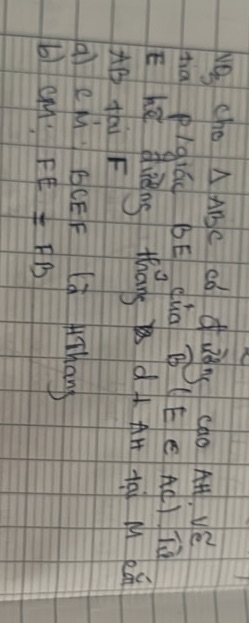 VD2 cho Δ ABC có đường cao AH. Vẽ
tia p/giác BE của B̂ (E ∈ AC). Từ
E kẻ đường thẳng d ⊥ AH tại M cắt
AB tại F
a) CM: BCEF là HThang
b) CM: FE = FB